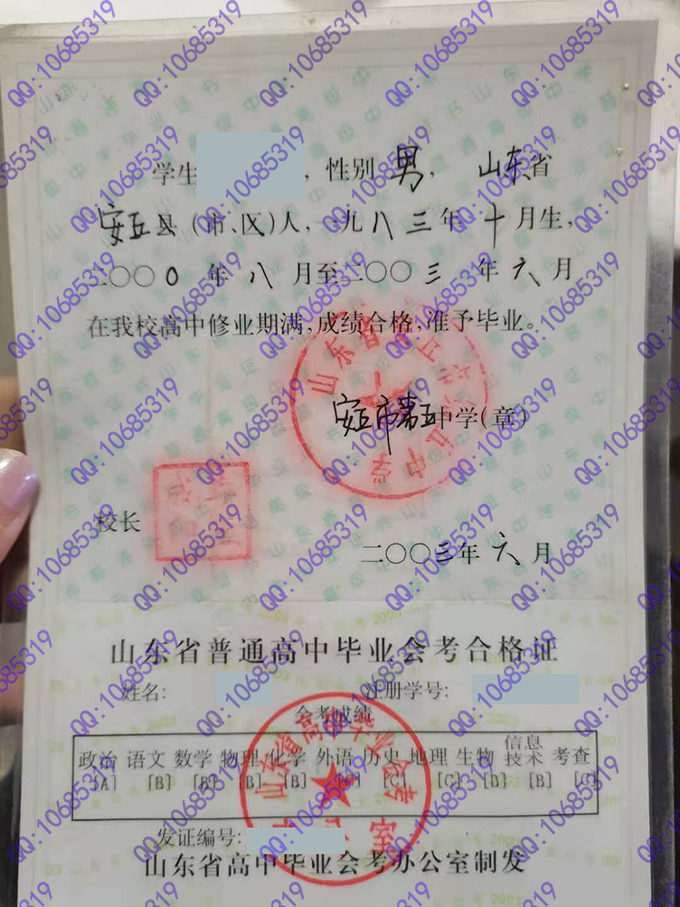 学生 ，性别 男， 山东省
安丘县（市、区）人，一九八三年十月生，
二〇〇0年八月至二〇〇三年六月
在我校高中修业期满，成绩合格，准予毕业。
安丘市第五中学（章）
校长
二〇〇三年六月
山东省普通高中毕业会考合格证
姓名： 注册学号：
会考成绩
政治 语文 数学 物理 化学 外语 历史 地理 生物 信息技术 考查
[A] [B] [B] [B] [B] [C] [C] [B] [B] [C
发证编号：
山东省高中毕业会考办公室制发
QQ:10685319